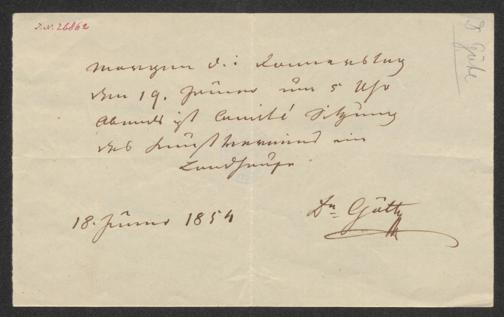 I.N. 26862
D Göth
Morgen d. i. Donnerstag
den 19. Jänner um 5 Uhr
Abends ist Comité Sitzung
des Kunstvereines im
Landhause.
18. Jänner 1854
Dr. Göth